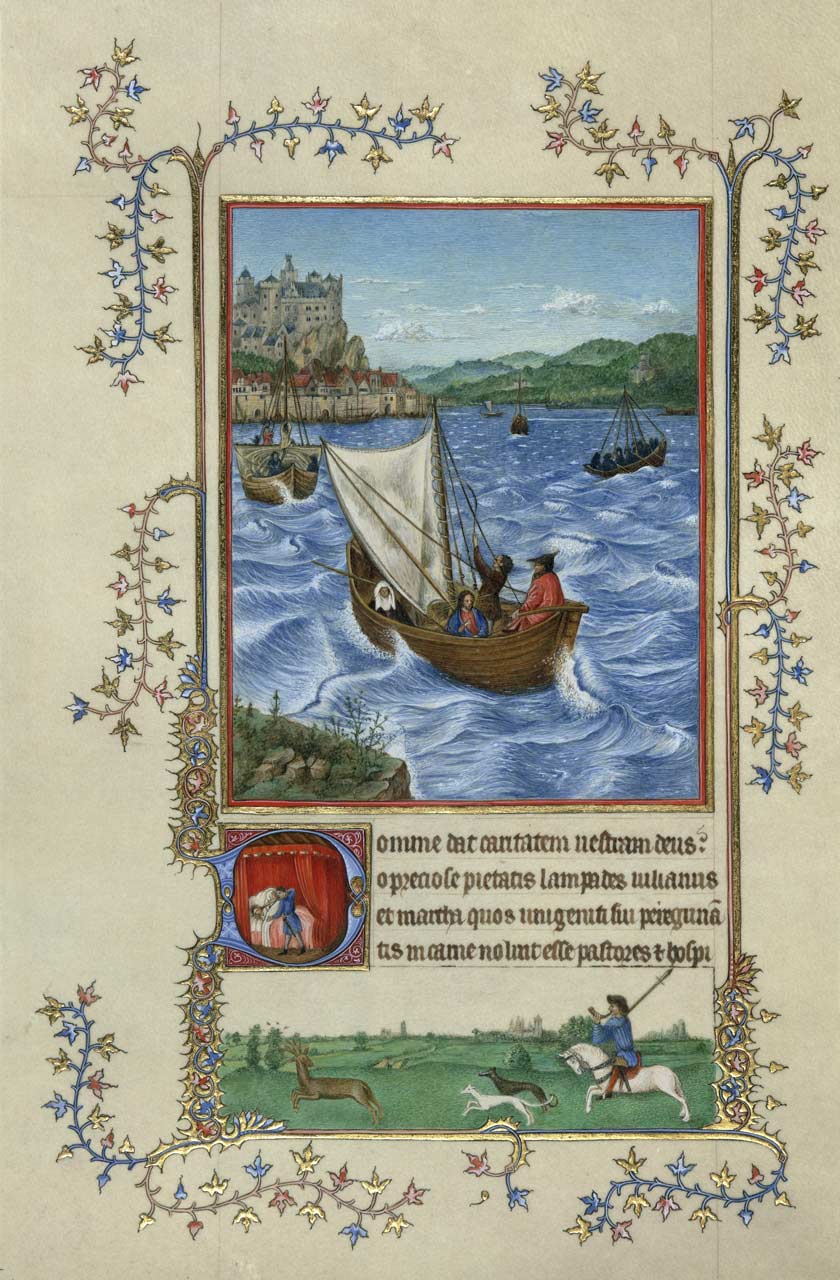 omine dat caritatem nestram deus?
o preciose pietatis lampades iulianus
et martha quos unigeniti sui peregrinā
tis in carne noluit esse pastores & hospi